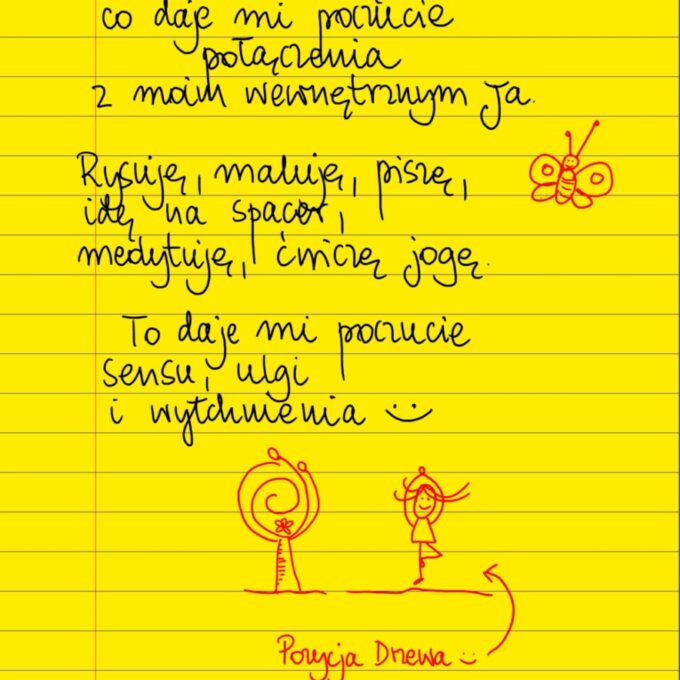 co daje mi poczucie
połączenia
z moim wewnętrznym Ja.
Rysuję, maluję, piszę,
idę na spacer,
medytuję, ćwiczę jogę.
To daje mi poczucie
sensu, ulgi
i wytchnienia :)
Pozycja Drzewa :)